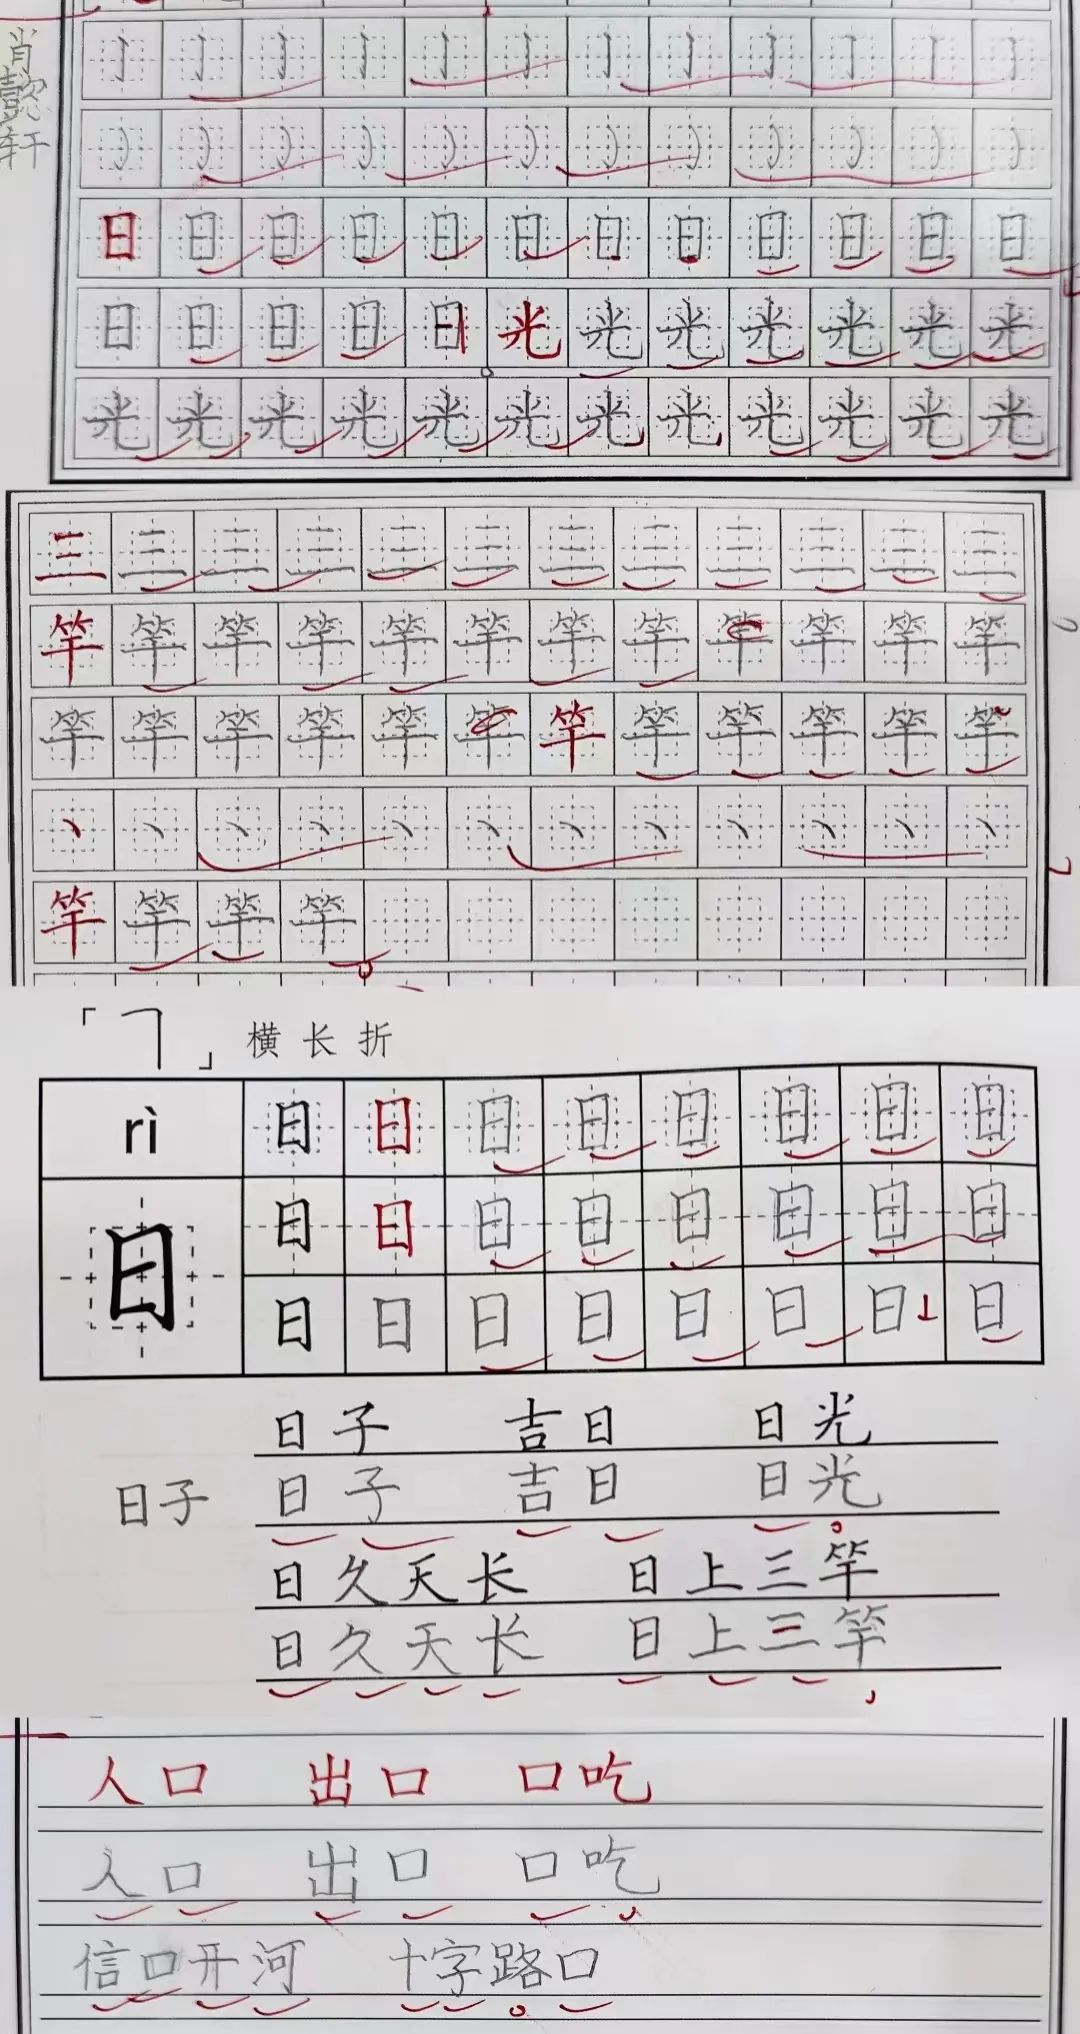 肖懿轩
日日日日日日日日日日日日
日日日日日光光光光光光光
光光光光光光光光光光光光
三三三三三三三三三三三三
竿竿竿竿竿竿竿竿竿竿竿竿
竿竿竿竿竿竿竿竿竿竿竿竿
丶丶丶丶丶丶丶丶丶丶丶丶
竿竿竿竿
「㇕」横长折
rì 日日日日日日日日
日 日日日日日日日日
日日日日日日日日
日子 吉日 日光
日子 日子 吉日 日光
日久天长 日上三竿
日久天长 日上三竿
人口 出口 口吃
人口 出口 口吃
信口开河 十字路口